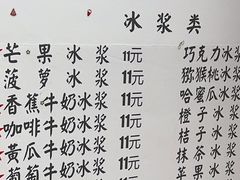 冰浆类
芒果冰浆 11元 巧克力冰
菠萝冰浆 11元 猕猴桃冰
香蕉牛奶冰浆 11元 哈蜜瓜冰
咖啡牛奶冰浆 11元 橙子冰
黄瓜牛奶冰浆 11元 桔子冰
葡萄牛奶冰浆 11元 抹茶冰
苹果冰